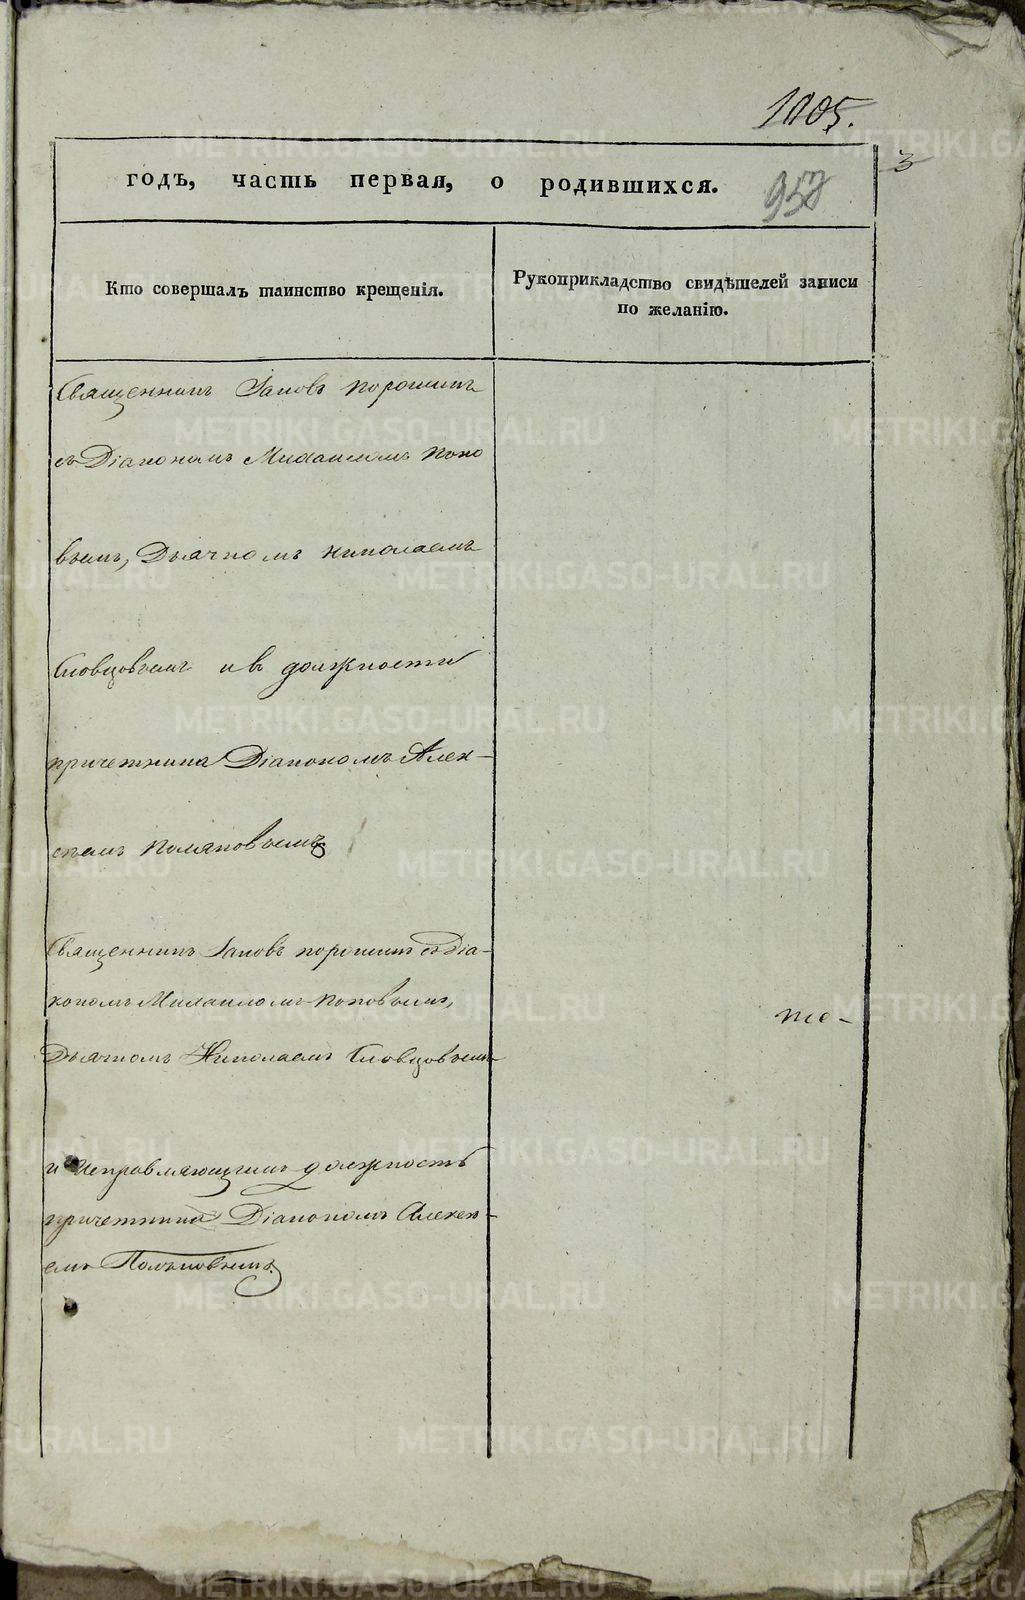 1005.
3
годъ, часть первая, о родившихся. 958
Кто совершалъ таинство крещенія.
Рукоприкладство свидѣтелей записи
по желанію.
Священникъ Іаковъ Порошинъ
съ Діакономъ Михаиломъ Попо
вымъ, Дьячкомъ Николаемъ
Словцовымъ и въ должности
причетника Діакономъ Алек-
сѣемъ Поляковымъ
Священникъ Іаковъ Порошинъ съ Діа-
кономъ Михаиломъ Поповымъ,
Дьячкомъ Николаемъ Словцовымъ
и исправляющимъ должность
причетника Діакономъ Алексѣ-
емъ Поляковымъ.
METRIKI.GASO-URAL.RU